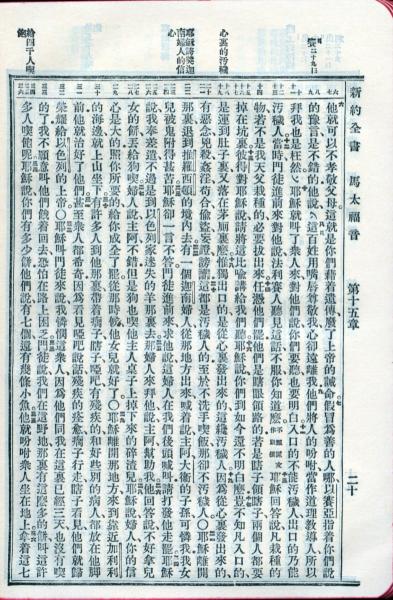 新約全書 馬太福音 第十五章 二十
心裏的汚穢
給四千人喫飽
他就可以不孝敬父母這就是你們藉着遺傳廢了上帝的誡命假冒爲善的人哪以賽亞指着你們說
的豫言是不錯的他說這百姓用嘴唇尊敬我心卻遠離我他們將人的吩咐當作道理教導人所以
拜我也是枉然耶穌就叫了衆人來對他們說你們要聽也要明白入口的不能汚穢人出口的乃能
汚穢人當時門徒進前來對他說法利賽人聽見這話不服你知道麽耶穌回答說凡栽種的
物若不是我天父栽種的必要拔出來任憑他們罷他們是瞎眼領路的若是瞎子領瞎子兩個人都要
掉在坑裏彼得對耶穌說請將這比喻講給我們聽耶穌說你們到如今還不明白麽豈不知凡入口的
是運到肚子裏又落在茅厠裏麽惟獨出口的是從心裏發出來的這纔汚穢人因爲從心裏發出來的
有惡念兇殺姦淫苟合偷盜妄證謗讟這都是汚穢人的至於不洗手喫飯那卻不汚穢人〇耶穌離開
那裏退到推羅西頓的境內去有一個迦南婦人從那地方出來喊着說主阿大衛的子孫可憐我我女
兒被鬼附得甚苦耶穌卻一言不答門徒進前來求他說這婦人在我們後頭喊叫請打發他走罷耶穌
說我奉差遣不過是到以色列家迷失的羊那裏去那婦人來拜他說主阿幫助我他回答說不好拿兒
女的餅丟給狗喫婦人說主阿不錯但是狗也喫他主人桌子上掉下來的碎渣兒耶穌說婦人你的信
心是大的照你所要的給你成全了罷從那時候他女兒就好了〇耶穌離開那地方來到靠近加利利
的海邊就上山坐下有許多人到他那裏帶着瘸子瞎子啞吧有殘疾的和好些別的病人都放在他脚
前他就治好了他們甚至衆人都希奇因爲看見啞吧說話殘疾的痊愈瘸子行走瞎子看見他們就歸
榮耀給以色列的上帝〇耶穌叫門徒來說我憐憫這衆人因爲他們同我在這裏已經三天也沒有喫
的了我不願意叫他們餓着回去恐怕在路上困乏門徒說我們在這野地那裏有這麽多的餅叫這許
多人喫飽呢耶穌說你們有多少餅他們說有七個還有幾條小魚他就吩咐衆人坐在地上拿着這七